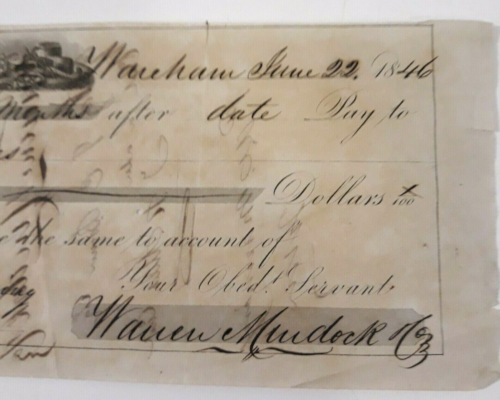 Wareham June 22. 1846
Months after date Pay to
Dollars /100
the same to account of
Your Obedt. Servant
Warren Murdock & Co